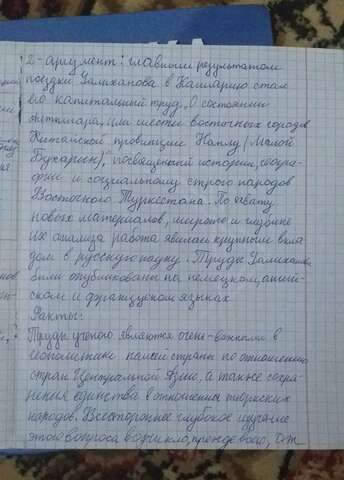 2-аргумент: главным результатом
поездки Уалиханова в Кашгарию стал
его капитальный труд „О состоянии
Алтышара, или шести восточных городов
Китайской провинции Нанлу (Малой
Бухарии)", посвященный истории, геогра-
фии и социальному строю народов
Восточного Туркестана. По охвату
новых материалов, широте и глубине
их анализа работа явилась крупным вкла
дом в русскую науку. Труды Уалиханова
были опубликованы на немецком, англий-
ском и французском языках
Факты:
Труды ученого являются очень важными в
геополитике нашей страны по отношению
стран Центральной Азии, а также сохра-
нения единства в отношения тюркских
народов. Всестороннее глубокое изучение
этого вопроса возникло, прежде всего, от